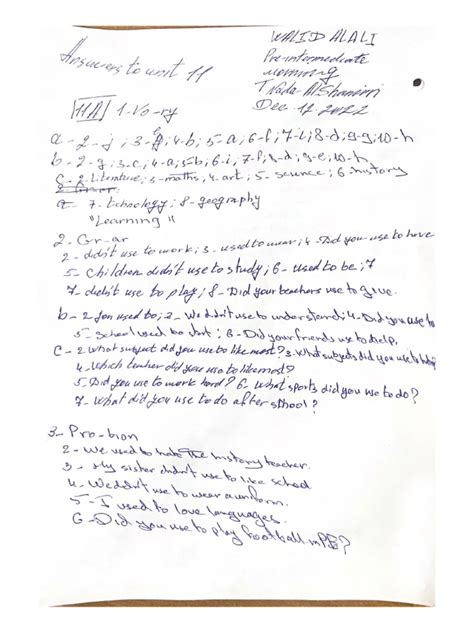 WALID ALALI
Answers to unit 11
Pre-intermediate
morning
T Nada AlShamiri
Dec 12 2022
11A 1-Vo-ry
a - 2-j; 3-g; 4-b; 5-a; 6-f; 7-i; 8-d; 9-g; 10-h
b - 2-g; 3-c; 4-a; 5-b; 6-i; 7-f; 8-d; 9-e; 10-h
c - 2-Literature; 3-maths; 4-art; 5- science; 6-history
7- technology; 8- geography
"Learning"
2- Gr-ar
2- didn't use to work; 3- used to wear; 4- Did you use to have
5- Children didn't use to study; 6- used to be; 7
7- didn't use to play; 8- Did your teachers use to give.
b - 2 you used to; 3- We didn't use to understand; 4- Did you use to
5- School used to start; 6- Did your friends use to help,
c - 2 What subject did you use to like most? 3- What subjects did you use to
4- Which teacher did you use to like most?
5- Did you use to work hard? 6- What sports did you use to do?
7- What did you use to do after school?
3- Pro-tion
2- We used to hate the history teacher.
3- My sister didn't use to like school
4- We didn't use to wear a uniform.
5- I used to love languages.
6- Did you use to play football in PE?